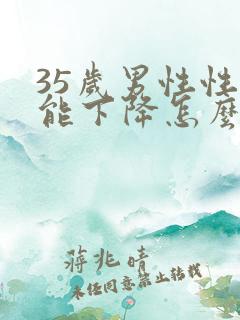 35歲男性性
能下降怎麼
蔣兆晴
未經同意禁止轉載